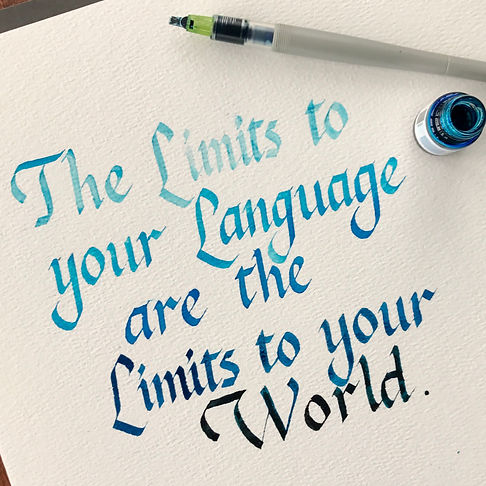 The Limits to
your Language
are the
Limits to your
World.